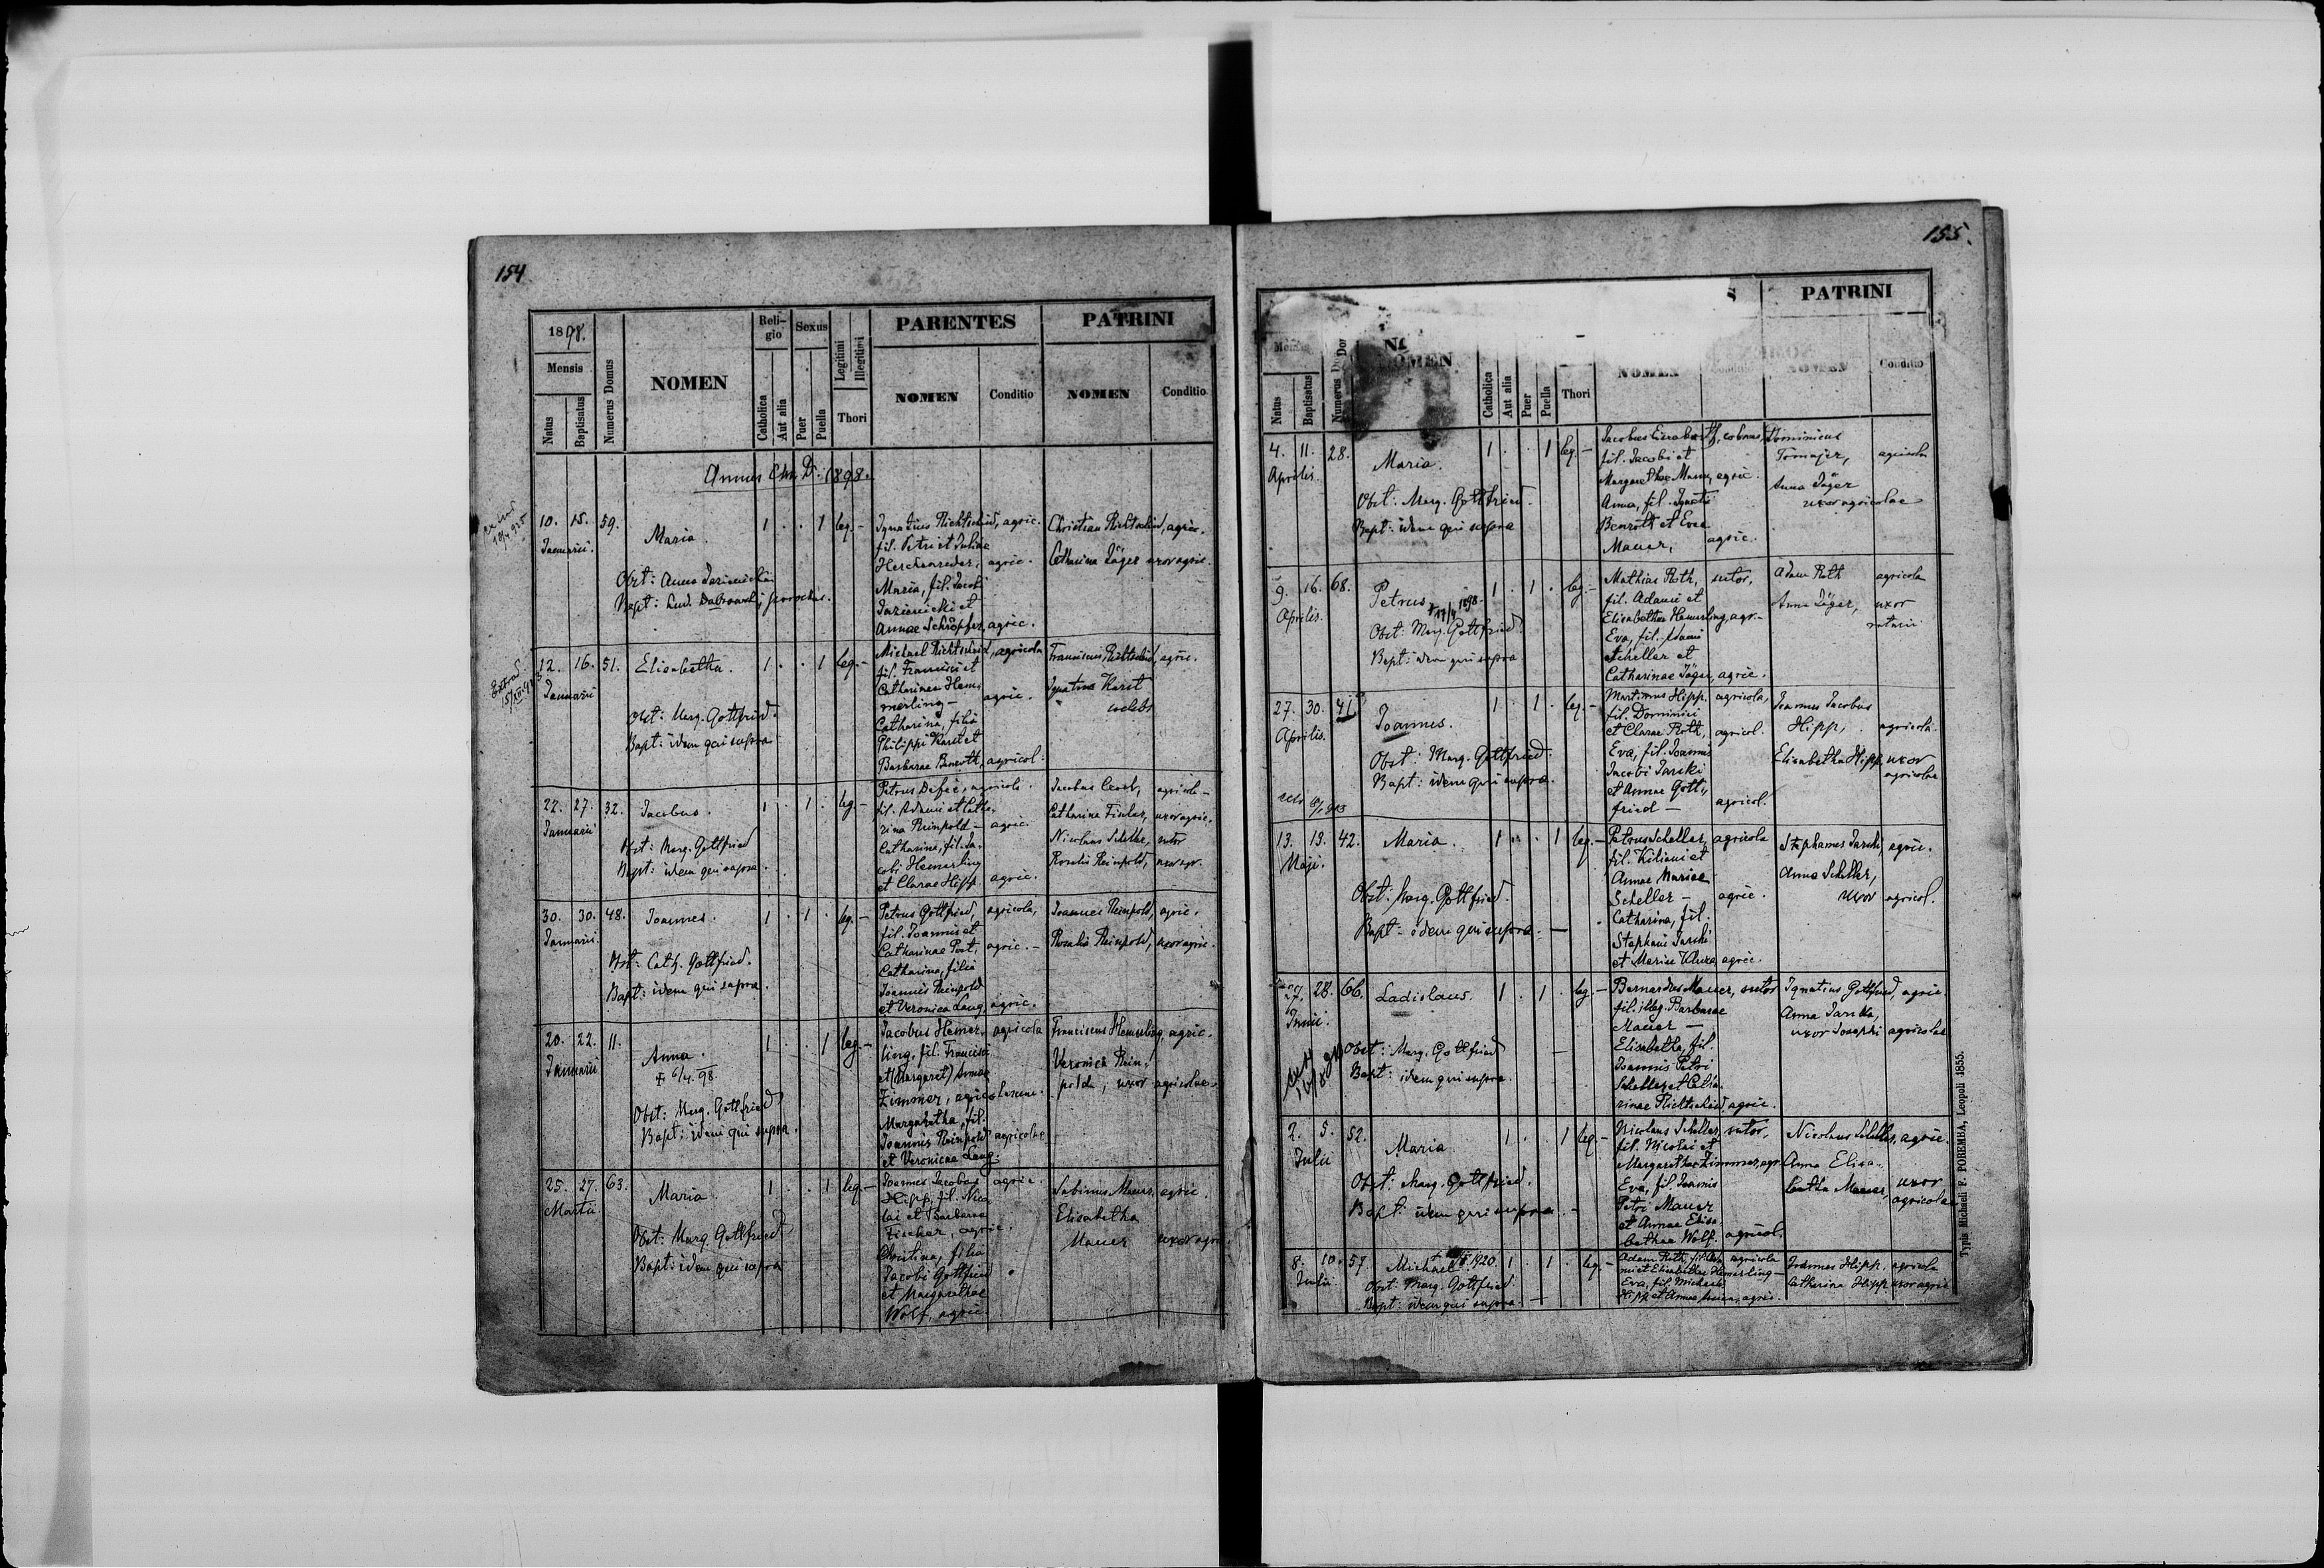 154
1898.
Mensis
Natus
Baptisatus
Numerus Domus
NOMEN
Reli-
gio
Catholica
Aut alia
Sexus
Puer
Puella
Legitimi
Illegitimi
Thori
PARENTES
NOMEN
Conditio
PATRINI
NOMEN
Conditio
Annus D. 1898.
10. 15. 59. Januarii.
Maria.
1 . . 1 leg. -
Obst: Anna
Bapt: Lud. Dabrowski, parochus.
Ignatius Richtscheid, agric.
fil. Petri et Juliae
agric.
Maria, fil. Jacobi
et
Annae Schöpfer, agric.
Christian Richtscheid, agric.
Catharina Jäger uxor agric.
12. 16. 51. Januarii
Elisabetha.
1 . . 1 leg. -
Obst: Marg. Gottfried.
Bapt: idem qui supra
Michael Richtscheid, agricola
fil. Francisci et
Catharinae Hem-
merling - agric.
Catharina, filia
Philippi Karst et
Barbarae Benroth, agricol.
Franciscus Richtscheid, agric.
Ignatius Karst
caelebs
22. 27. 32. Januarii
Jacobus.
1 . 1 . leg. -
Obst: Marg. Gottfried
Bapt: idem qui supra.
Petrus agricola.
fil. Adami et Catha-
rina Reinpold - agric.
Catharina, fil. Ja-
cobi Hemerling
et Clarae Hipp agric.
Jacobus agricola -
Catharina Fischer, uxor agric.
Nicolaus Scheller, sutor
Rosalia Reinpold, uxor agr.
30. 30. 48. Januarii.
Joannes.
1 . 1 . leg. -
Obst: Cath. Gottfried.
Bapt: idem qui supra.
Petrus Gottfried, agricola,
fil. Joannis et
Catharinae Post, agric. -
Catharina, filia
Joannis Reinpold
et Veronica Lang, agric.
Joannes Reinpold, agric.
Rosalia Reinpold, uxor agric.
20. 22. 11. Januarii
Anna.
† 6/4. 98.
1 . . 1 leg. -
Obst: Marg. Gottfried
Bapt: idem qui supra.
Jacobus Hemer- agricola
ling, fil. Francisci
et (Margaret) Annae
Zimmer,
Margaretha, fil.
Joannis Reinpold agricolae
et Veronicae Lang.
Franciscus Hemerling, agric.
Veronica Rein-
pold, uxor agricolae
25. 27. 63. Martii.
Maria
1 . . 1 leg. -
Obst: Marg. Gottfried
Bapt: idem qui supra
Joannes Jacobus agric.
Hipp, fil. Nico-
lai et Barbarae
Fischer, agric.
Christina, filia
Jacobi Gottfried
et Margarethae
Wolf, agric.
Sabinus Mauer, agric.
Elisabetha
Mauer uxor agric
155.
PATRINI
NOMEN
Natus
Baptisatus
Catholica
Aut alia
Puer
Puella
Thori
NOMEN
Conditio
4. 11. 28. Aprilis.
Maria.
1 . . 1 leg. -
Obst: Marg. Gottfried.
Bapt: idem qui supra
fil. Jacobi et
Margarethae agric.
Anna, fil. Ignatii
Benroth et Eva
Mauer, agric.
Dominicus
Tomajer, agricola
Anna Jäger
uxor agricolae
9. 16. 68. Aprilis.
Petrus
† 17/4 1898.
1 . 1 . leg. -
Obst: Marg. Gottfried
Bapt: idem qui supra
Mathias Roth, sutor,
fil. Adami et
Elisabethae Hemerling, agr. -
Eva, fil. Adami
Scheller et
Catharinae Jäger, agric.
Adam Roth agricola
Anna Jäger, uxor
27. 30. 41. Aprilis.
Joannes.
1 . 1 . leg. -
Obst: Marg. Gottfried.
Bapt: idem qui supra.
Martinus Hipp, agricola,
fil. Dominici
et Clarae Roth, agricol.
Eva, fil. Joannis
Jacobi Jarski
et Annae Gott-
fried - agricol.
Joannes Jacobus
Hipp, agricola
Elisabetha Hipp, uxor
agricolae
13. 13. 42. Maji.
Maria.
1 . . 1 leg. -
Obst: Marg. Gottfried.
Bapt - idem qui supra. -
Petrus Scheller, agricola
fil. Kiliani et
Annae Mariae
Scheller - agric.
Catharina, fil.
Stephani Jarski
et Mariae agric.
Stephanus Jarski, agric.
Anna Scheller,
uxor agricol.
27. 28. 66. Junii.
Ladislaus.
1 . 1 . leg. -
Obst: Marg. Gottfried
Bapt: idem qui supra.
Bernardus Mauer, sutor
fil. illeg. Barbarae
Mauer -
Elisabetha, fil.
Joannis Petri
Scheller et Catha-
rinae Richtscheid, agric.
Ignatius Gottfried, agric.
Anna Jarska,
uxor Josephi agricolae
2. 5. 52. Julii
Maria
1 . . 1 leg. -
Obst: Marg. Gottfried.
Bapt: idem qui supra. -
Nicolaus Scheller, sutor,
fil. Nicolai et
Margarethae Zimmer, agr.
Eva, fil. Joannis
Petri Mauer
et Annae Elisa-
bethae Wolf. agricol.
Nicolaus Scheller, agric.
Anna Elisa-
betha Mauer, uxor
agricolae
8. 10. 57. Julii
Michael
1920.
1 . 1 . leg. -
Obst: Marg. Gottfried
Bapt: idem qui supra. -
Adam Roth, fil. Ada- agricola
mi et Elisabethae Hemerling -
Eva, fil. Michaelis
Hipp et Annae agric.
Joannes Hipp. agricola
Catharina Hipp uxor agric
Typis Michaeli F. POREMBA, Leopoli 1855.